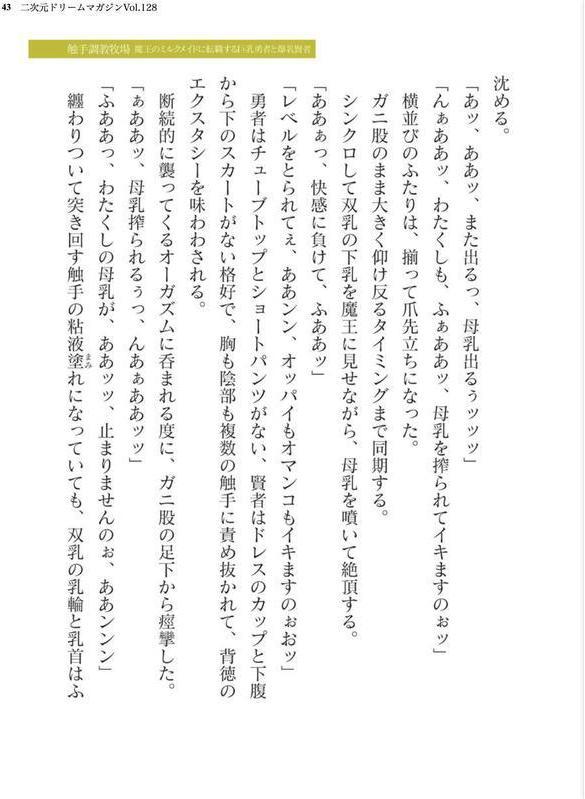 43 二次元ドリームマガジンVol.128
触手調教牧場 魔王のミルクメイドに転職する巨乳勇者と爆乳賢者
沈める。
「あッ、ああッ、また出るっ、母乳出るぅッッッ」
「んぁああッ、わたくしも、ふぁああッ、母乳を搾られてイキますのぉッ」
横並びのふたりは、揃って爪先立ちになった。
ガニ股のまま大きく仰け反るタイミングまで同期する。
シンクロして双乳の下乳を魔王に見せながら、母乳を噴いて絶頂する。
「ああぁっ、快感に負けて、ふああッ」
「レベルをとられてぇ、ああンン、オッパイもオマンコもイキますのぉおッ」
勇者はチューブトップとショートパンツがない、賢者はドレスのカップと下腹
から下のスカートがない格好で、胸も陰部も複数の触手に責め抜かれて、背徳の
エクスタシーを味わわされる。
断続的に襲ってくるオーガズムに呑まれる度に、ガニ股の足下から痙攣した。
「ぁああッ、母乳搾られるぅっ、んあぁああッッ」
「ふああっ、わたくしの母乳が、ああッッ、止まりませんのぉ、ああンンン」
纏わりついて突き回す触手の粘液塗まみれになっていても、双乳の乳輪と乳首はふ